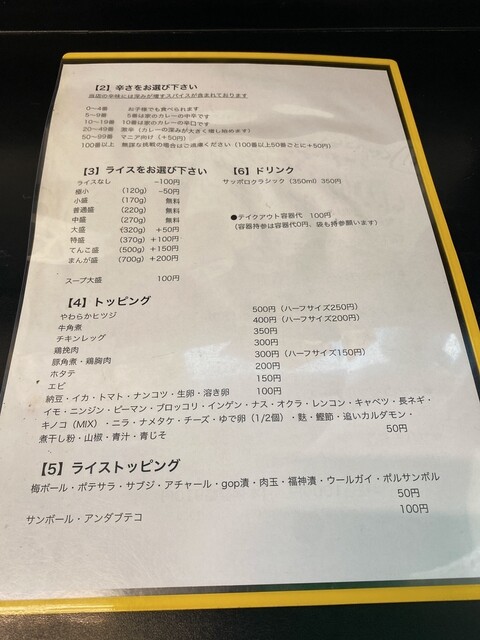 【2】辛さをお選び下さい
当店の辛味には深みが増すスパイスが含まれております
0〜4番　お子様でも食べられます
5〜9番　5番は家のカレーの中辛です
10〜19番　10番は家のカレーの辛口です
20〜49番　激辛（カレーの深みが大きく増し始めます）
50〜99番　マニア向け（＋50円）
100番以上　無謀な挑戦の場合はご遠慮ください（100番以上50番ごとに＋50円）
【3】ライスをお選び下さい
ライスなし　−100円
極小　（120g）　−50円
小盛　（170g）　無料
普通盛　（220g）　無料
中盛　（270g）　無料
大盛　（320g）　＋50円
特盛　（370g）＋100円
てんこ盛　（500g）＋150円
まんが盛　（700g）＋200円
スープ大盛　100円
【6】ドリンク
サッポロクラシック（350ml）350円
●テイクアウト容器代　100円
（容器持参は容器代0円、袋も持参願います）
【4】トッピング
やわらかヒツジ　500円（ハーフサイズ250円）
牛角煮　400円（ハーフサイズ200円）
チキンレッグ　350円
鶏挽肉　300円
豚角煮・鶏胸肉　300円（ハーフサイズ150円）
ホタテ　200円
エビ　150円
納豆・イカ・トマト・ナンコツ・生卵・溶き卵　100円
イモ・ニンジン・ピーマン・ブロッコリ・インゲン・ナス・オクラ・レンコン・キャベツ・長ネギ・
キノコ（MIX）・ニラ・ナメタケ・チーズ・ゆで卵（1/2個）・麩・鰹節・追いカルダモン・
煮干し粉・山椒・青汁・青じそ　50円
【5】ライストッピング
梅ボール・ポテサラ・サブジ・アチャール・gop漬・肉玉・福神漬・ウールガイ・ポルサンボル
50円
サンボール・アンダブテコ　100円